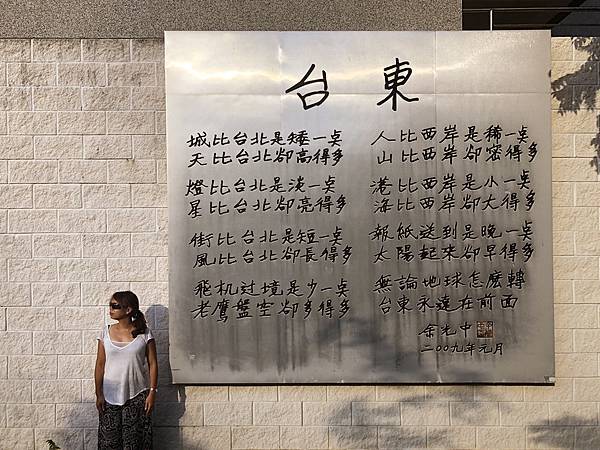 台東
城比台北是矮一点
天比台北卻高得多
燈比台北是淡一点
星比台北卻亮得多
街比台北是短一点
風比台北卻長得多
飛机过境是少一点
老鷹盤空卻多得多
人比西岸是稀一点
山比西岸卻密得多
港比西岸是小一点
海比西岸卻大得多
報紙送到是晚一点
太陽起來卻早得多
無論地球怎麼轉
台東永遠在前面
余光中
二〇〇九年元月